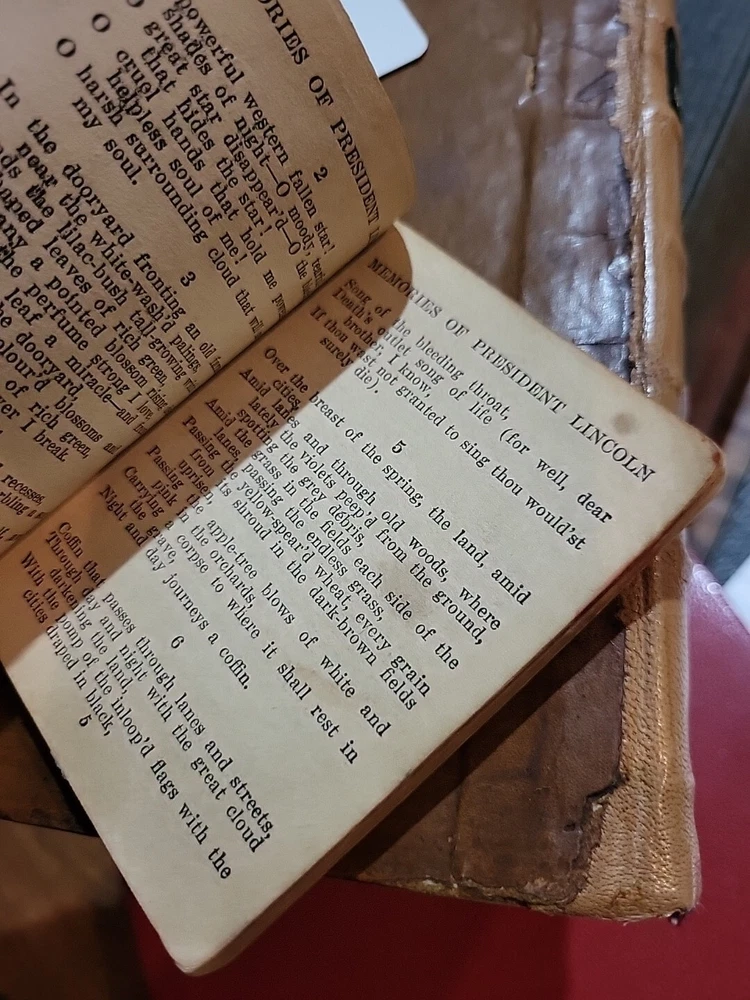 ORIES OF PRESIDENT L
2
powerful western fallen star!
shades of night—O moody,
great star disappear'd—O the
that hides the star!
O cruel hands that hold me
helpless soul of me!
O harsh surrounding cloud that
my soul.
3
In the dooryard fronting an old
near the white-wash'd palings,
the lilac-bush tall-growing
haped leaves of rich green,
any a pointed blossom rising
he perfume strong I love,
leaf a miracle—and
he dooryard,
olour'd blossoms
of rich green,
ver I break.
recesses,
MEMORIES OF PRESIDENT LINCOLN
Song of the bleeding throat,
Death's outlet song of life (for well, dear
brother, I know,
If thou wast not granted to sing thou would'st
surely die).
5
Over the breast of the spring, the land, amid
cities,
Amid lanes and through old woods, where
lately the violets peep'd from the ground,
spotting the grey débris,
Amid the grass in the fields each side of the
lanes, passing the endless grass,
Passing the yellow-spear'd wheat, every grain
from its shroud in the dark-brown fields
uprisen,
Passing the apple-tree blows of white and
pink in the orchards,
Carrying a corpse to where it shall rest in
the grave,
Night and day journeys a coffin.
6
Coffin that passes through lanes and streets,
Through day and night with the great cloud
darkening the land,
With the pomp of the inloop'd flags with the
cities draped in black,
5